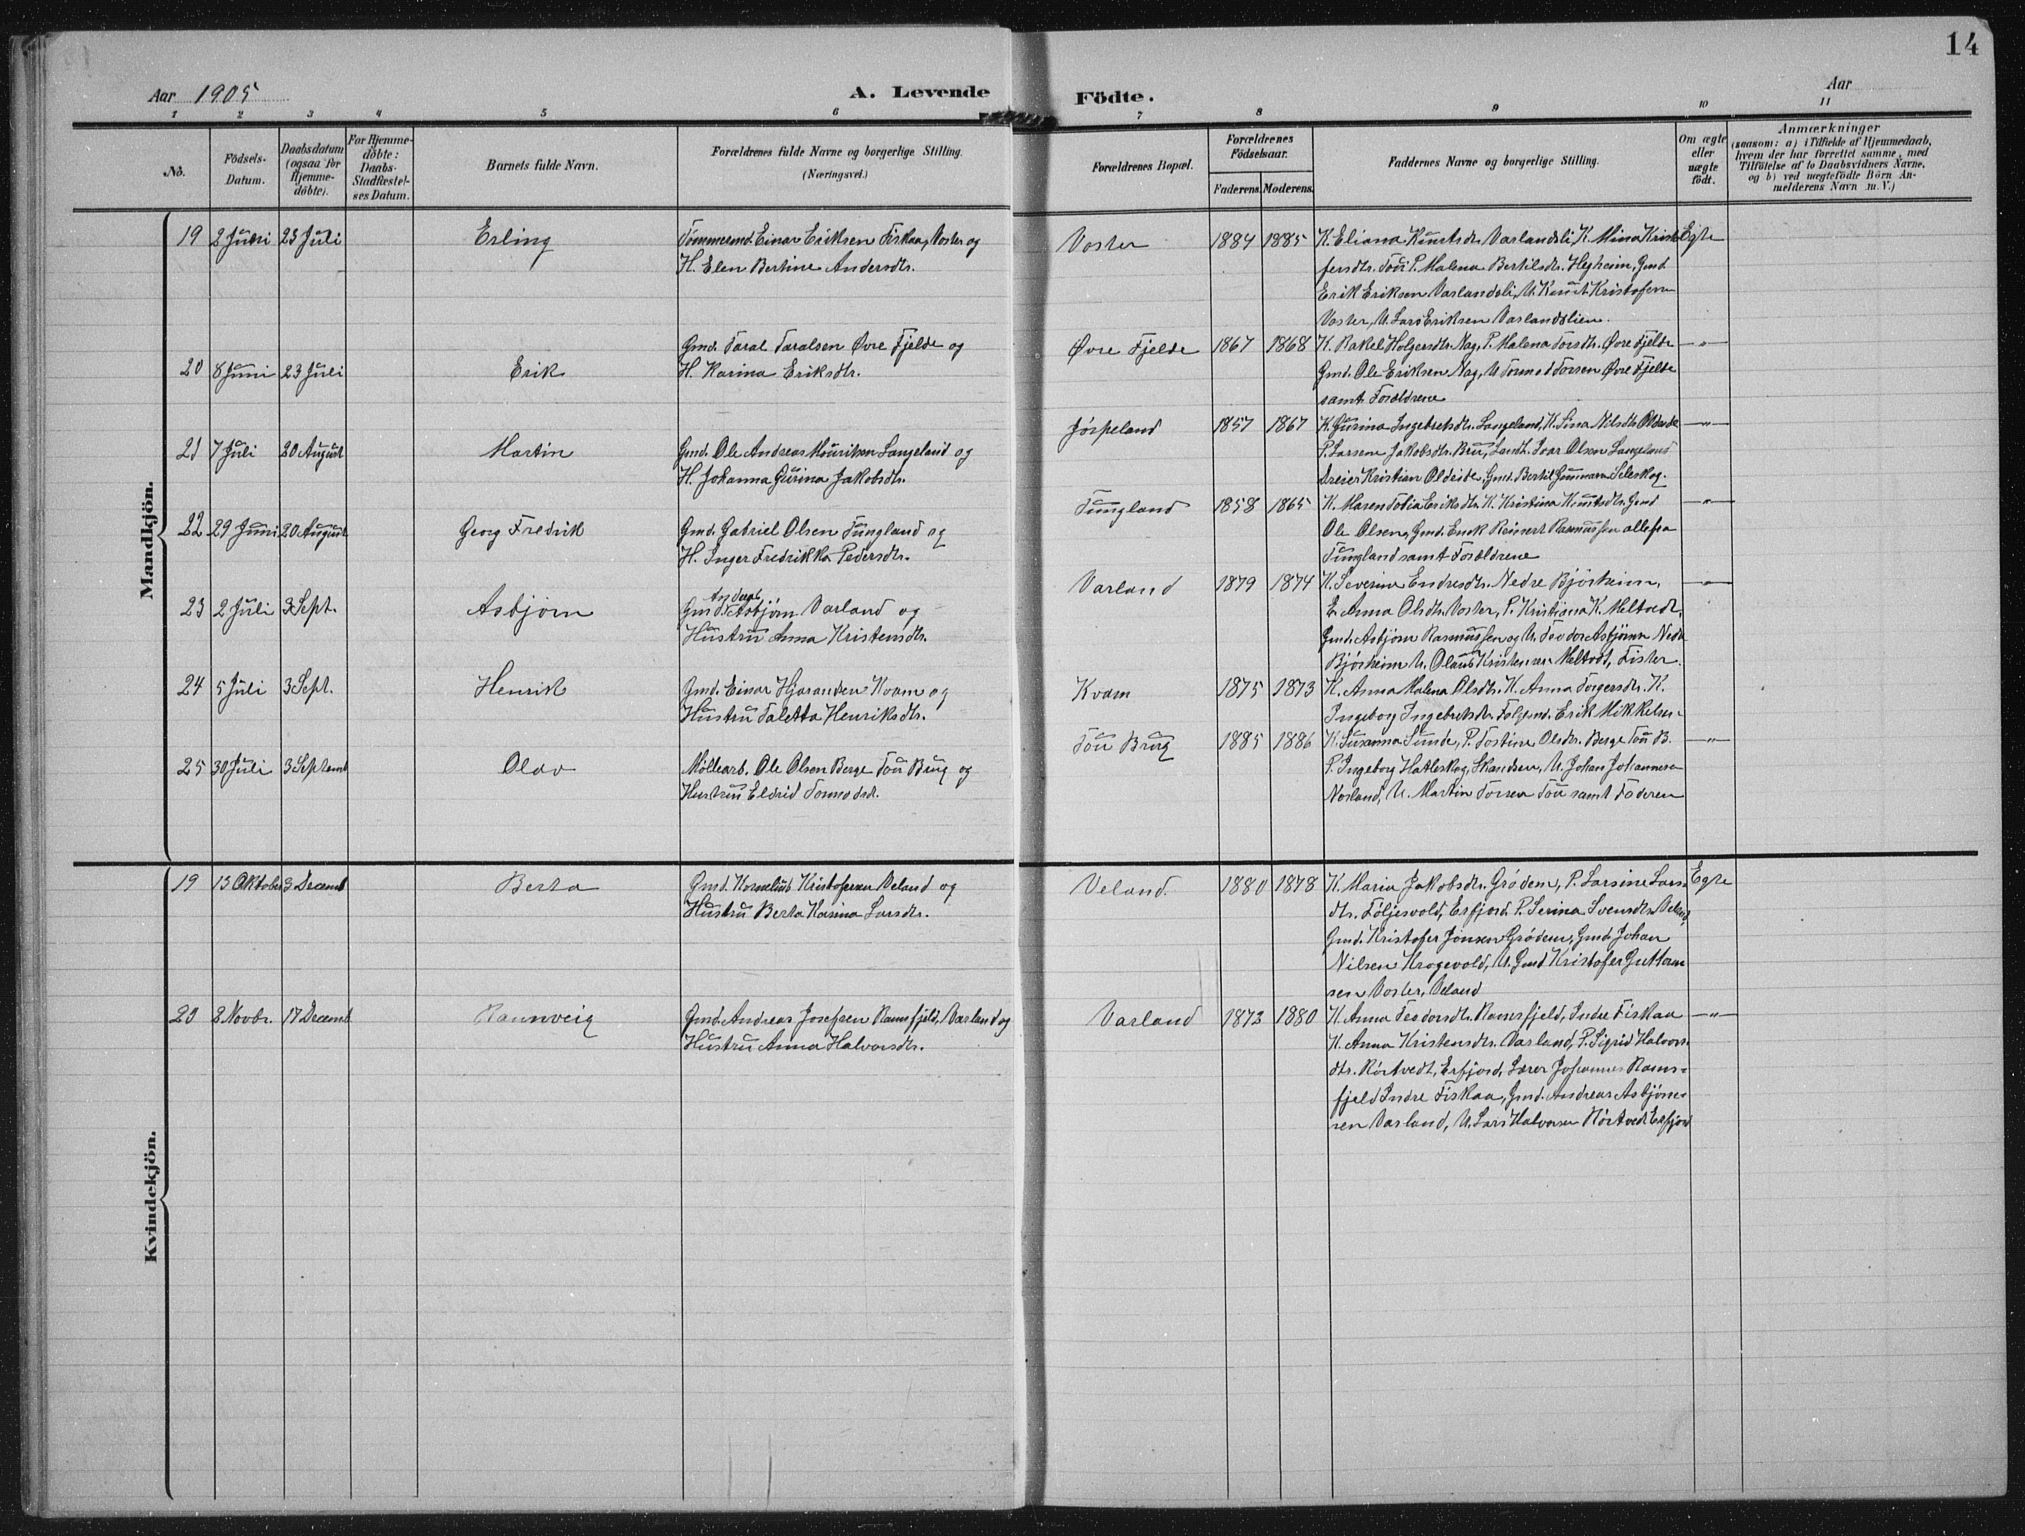 14
Aar 1905
A. Levende Födte.
Aar
1 2 3 4 5 6 7 8 9 10 11
No.
Födsels-Datum.
Daabsdatum (ogsaa for Hjemme-döbte).
For Hjemme-döbte: Daabs-Stadfæstel-ses Datum.
Barnets fulde Navn.
Forældrenes fulde Navne og borgerlige Stilling. (Næringsvei.)
Forældrenes Bopæl.
Forældrenes Födselsaar.
Faderens. Moderens.
Faddernes Navne og borgerlige Stilling.
Om ægte eller uægte födt.
Anmærkninger
(saasom: a) i Tilfælde af Hjemmedaab, hvem der har forrettet samme, med Tilföielse af to Daabsvidners Navne, og b) ved uægtefödte Börn An-melderens Navn m. V.)
Mandkjön.
19 2 Juni 23 Juli Erling
Tømmermd. Einar Eriksen Fiskaa, Voster og
H. Elen Bertine Andersdtr.
Voster 1884 1885
K. Eliana Knutsdtr. Varlandsli, K. Mina Kristo-
fersdtr. Tou P. Malena Bertilsdtr. Hegheim, Gmd.
Erik Eriksen Varlandsli, U. Knut Kristofersen
Voster, U. Lars Eriksen Varlandslien.
Egte
20 8 Juni 23 Juli Erik
Gmd. Taral Taralsen Øvre Fjelde og
H. Karina Eriksdtr.
Øvre Fjelde 1867 1868
K. Rakel Holgersdtr. Nag, P. Malena Torsdtr. Øvre Fjelde
Gmd. Ole Eriksen Nag, U. Tormod Torsen Øvre Fjelde
samt Forældrene
—"—
21 7 Juli 20 August Martin
Gmd. Ole Andreas Mouritsen Langeland og
H. Johanna Gurina Jakobsdtr.
Jørpeland 1857 1867
K. Gurina Ingebretsdtr. Langeland, K. Sina Nilsdtr. Oldeide
P. Larsem Jakobsdtr. Bru, Landh. Ivar Olsen Langeland
Dreier Kristian Oldeide, Gmd. Bertil Gunnarsen Seleskog.
—"—
22 29 Juni 20 August Georg Fredrik
Gmd. Gabriel Olsen Tungland og
H. Inger Fredrikka Pedersdtr.
Tungland 1858 1865
K. Maren Sofia Eriksdtr. K. Kristina Knutsdtr. Gmd.
Ole Olsen, Gmd. Enok Reinert Rasmussen alle fra
Tungland samt Forældrene
—"—
23 2 Juli 3 Sept. Asbjørn
Andreas
Gmd. Asbjørn. Varland og
Hustru Anna Kristensdtr.
Varland 1879 1874
K. Severine Endresdtr. Nedre Bjørheim,
E. Anna Olsdtr. Voster, P. Kristiana K. Meltvedt,
Gmd. Asbjørn Rasmussen og U. Teodor Asbjørnsen Nedr.
Bjørheim U. Olaus Kristensen Meltvedt, Fister.
—"—
24 5 Juli 3 Sept. Henrik
Gmd. Einar Hjorandsen Kvam og
Hustru Taletta Henriksdtr.
Kvam 1875 1873
K. Anna Malena Olsdtr. K. Anna Torgersdtr. K.
Ingeborg Ingebretsdtr. Erik Mikkelsen
25 30 Juli 3 Septemb Olav
Møllearb. Ole Olsen Berge Tou Brug og
Hustru Eldrid Tormodsdt.
Tou Brug 1885 1886
K. Susanna Sunde, P. Tostine Olsdtr. Berge Tou B.
P. Ingeborg Hatleskog, Skandsen, U. Johan Johannesen
Norland, U. Martin Torsen Tou samt Faderen
—"—
Kvindekjön.
19 13 Oktober 3 Decemb Berta
Gmd. Kornelius Kristofersen Veland og
Hustru Berta Karina Larsdtr.
Veland 1880 1878
K. Maria Jakobsdtr. Grødem, P. Larsine Lars-
dtr. Føljesvold, Erfjord. P. Serina Svensdtr. Veland,
Gmd. Kristofer Jonsen Grødem, Gmd. Johan
Nilsen Krogevold, U. Gmd. Kristofer Guttorm-
sen Voster, Veland
Egte
20 2 Novbr. 17 Decemb Rannveig
Gmd. Andreas Josefsen Ramsfjeld, Varland og
Hustru Anna Halvorsdtr.
Varland 1873 1880
K. Anna Teodorsdtr. Ramsfjeld, Indre Fiskaa
K. Anna Kristensdtr. Varland, P. Sigrid Halvors-
dtr. Rørtvedt, Erfjord, Lærer Johannes Rams-
fjeld Indre Fiskaa, Gmd. Andreas Asbjørn-
sen Varland, U. Lars Halvorsen Rørtvedt Erfjord
—"—